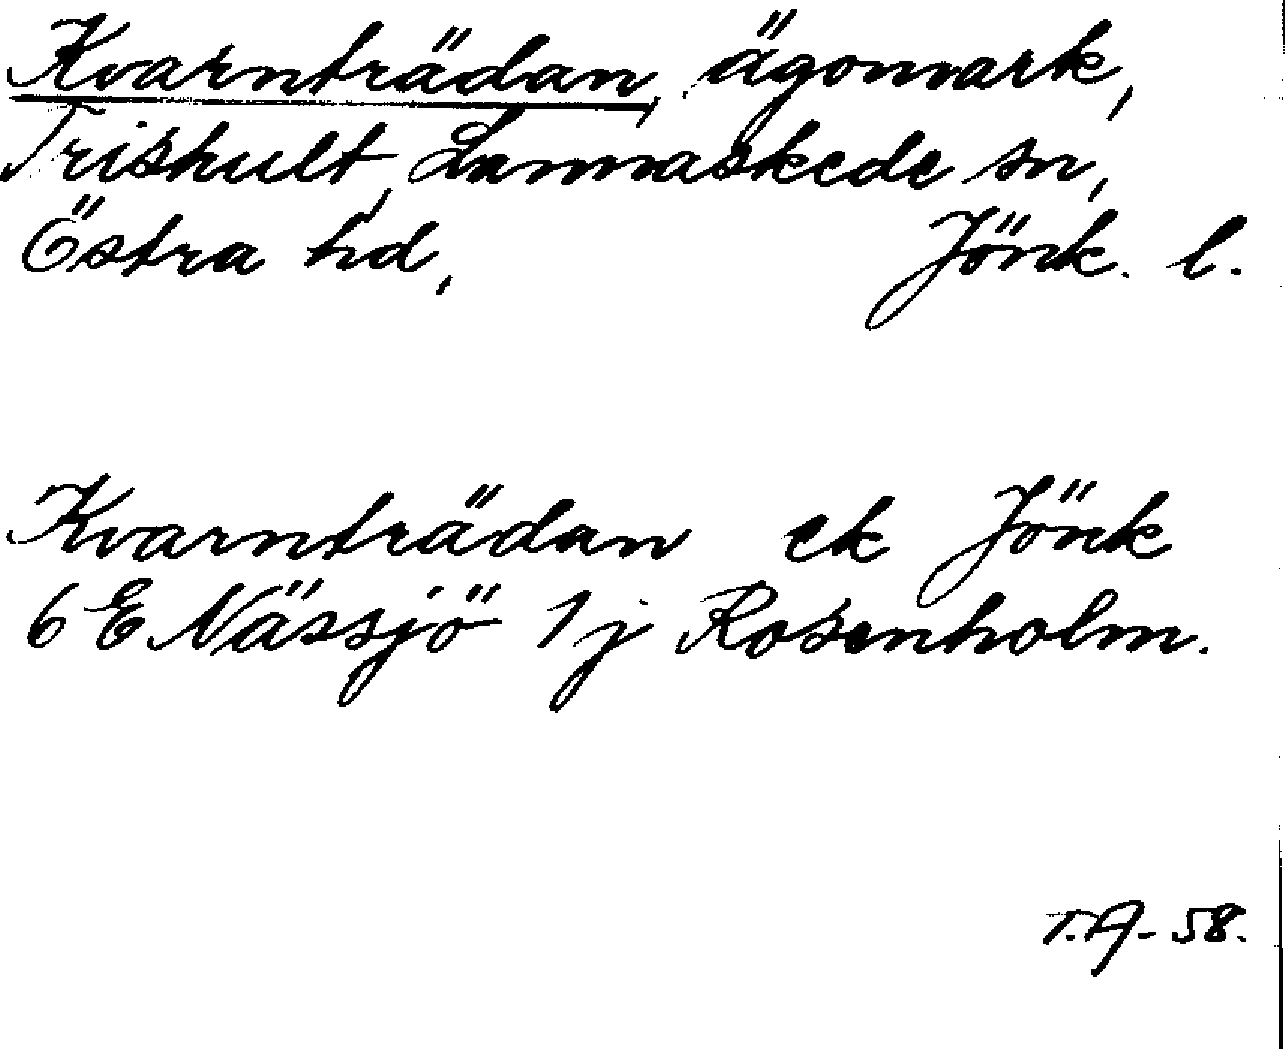 Kvarnträdan, ägomark,
Trishult, Lannaskede sn,
Östra hd, Jönk. l.
Kvarnträdan ek Jönk
6 E Nässjö 1j Rosenholm.
T.A- 58.